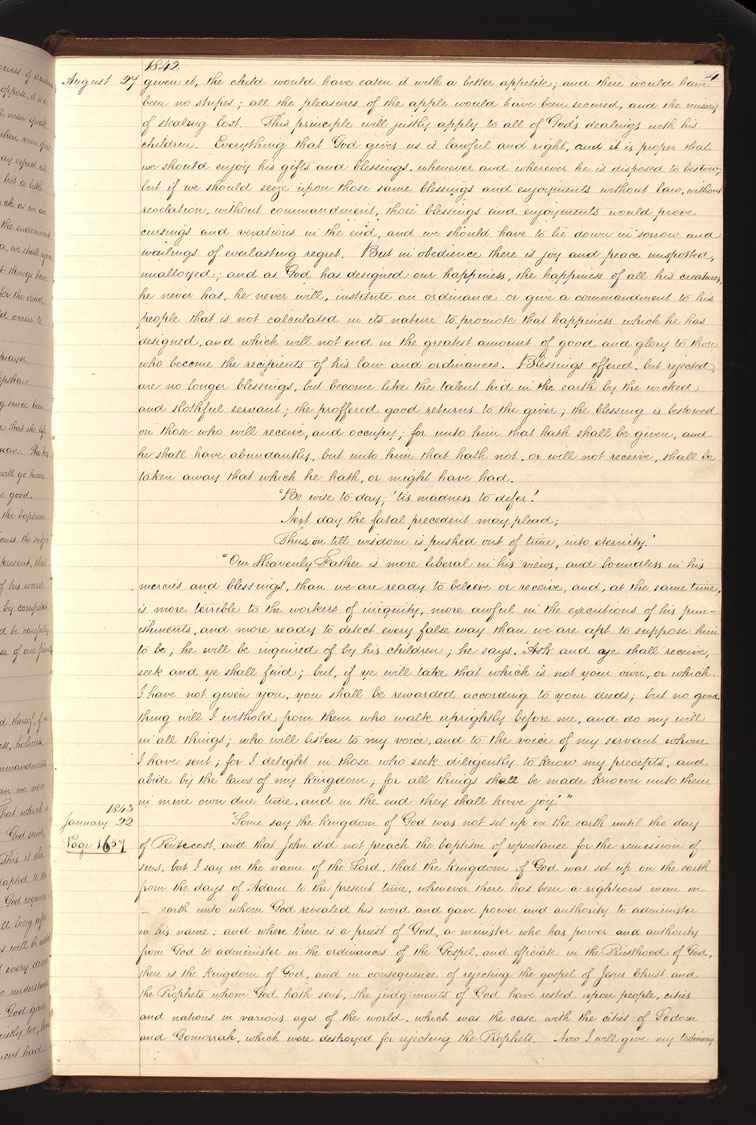 1842
4
August 27 given it, the child would have eaten it with a better appetite; and there would have
been no stripes; all the pleasures of the apple would have been secured, and the misery
of stealing lost. This principle will justly apply to all of God's dealings with his
children. Everything that God gives us is lawful and right, and it is proper that
we should enjoy his gifts and blessings, whenever and wherever he is disposed to bestow;
but if we should seize upon those same blessings and enjoyments without law, without
revelation, without commandment, those blessings and enjoyments would prove
cursings and vexations in the end, and we should have to lie down in sorrow and
wailings of everlasting regret. But in obedience there is joy and peace unspotted,
unalloyed; and as God has designed our happiness, the happiness of all his creatures,
he never has, he never will, institute an ordinance or give a commandment to his
people that is not calculated in its nature to promote that happiness which he has
designed, and which will not end in the greatest amount of good and glory to those
who become the recipients of his law and ordinances. Blessings offered, but rejected,
are no longer blessings, but become like the talent hid in the earth by the wicked
and slothful servant; the proffered good returns to the giver; the blessing is bestowed
on those who will receive, and occupy; for unto him that hath shall be given, and
he shall have abundantly, but unto him that hath not, or will not receive, shall be
taken away that which he hath, or might have had.
'Be wise to day; 'tis madness to defer!
Next day the fatal precedent may plead;
Thus on till wisdom is pushed out of time, into eternity.'
"Our Heavenly Father is more liberal in his views, and boundless in his
mercies and blessings, than we are ready to believe or receive, and, at the same time,
is more terrible to the workers of iniquity, more awful in the executions of his pun-
ishments, and more ready to detect every false way than we are apt to suppose him
to be; he will be inquired of by his children; he says, 'Ask and ye shall receive,
seek and ye shall find; but, if ye will take that which is not your own, or which
I have not given you, you shall be rewarded according to your deeds; but no good
thing will I withold from them who walk uprightly before me, and do my will
in all things; who will listen to my voice, and to the voice of my servant whom
I have sent; for I delight in those who seek diligently to know my precepts, and
abide by the laws of my kingdom; for all things shall be made known unto them
in mine own due time, and in the end they shall have joy.'"
1843
January 22 "Some say the kingdom of God was not set up on the earth until the day
Page 1657 of Pentecost, and that John did not preach the baptism of repentance for the remission of
sins, but I say in the name of the Lord, that the kingdom of God was set up on the earth
from the days of Adam to the present time, whenever there has been a righteous man on
earth unto whom God revealed his word and gave power and authority to administer
in his name; and where there is a priest of God, a minister who has power and authority
from God to administer in the ordinances of the Gospel, and officiate in the Priesthood of God,
there is the kingdom of God, and in consequence of rejecting the gospel of Jesus Christ and
the Prophets whom God hath sent, the judgments of God have rested upon people, cities
and nations in various ages of the world, which was the case with the cities of Sodom
and Gomorrah, which were destroyed for rejecting the Prophets. Now I will give my testimony